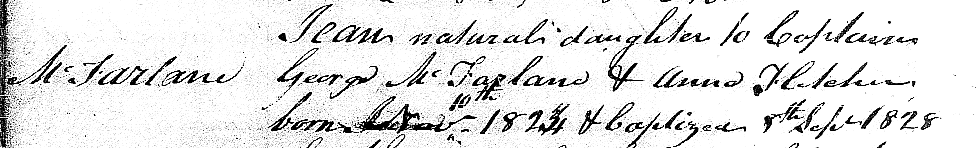 Jean natural daughter to Captain
McFarlane George McFarlane & Anne Fletcher
born 10th 1824 & baptized 8th Sept 1828